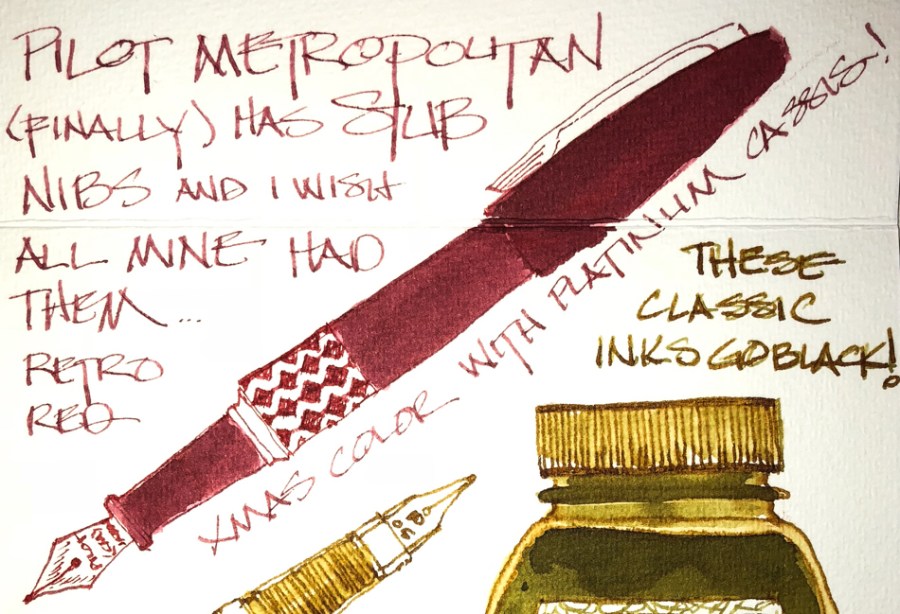 PILOT METROPOLITAN
(FINALLY) HAS STUB
NIBS AND I WISH
ALL MINE HAD
THEM ...
RETRO
RED
XMAS COLOR WITH PLATINIUM CASSIS!
THESE
CLASSIC
INKS GO BLACK!